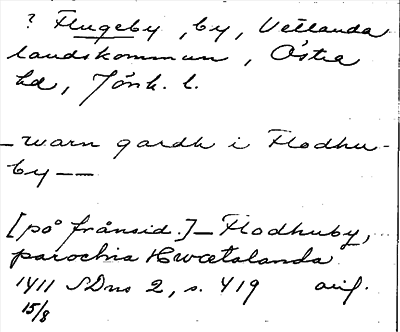 ? Flugeby, by, Vetlanda
landskommun, Östra
hd, Jönk. l.
— warn gardh i Flodhu-
by — —
[på frånsid.] — Flodhuby,
parochia Hwætalanda
1411 SDns 2, s. 419 avf.
15/8